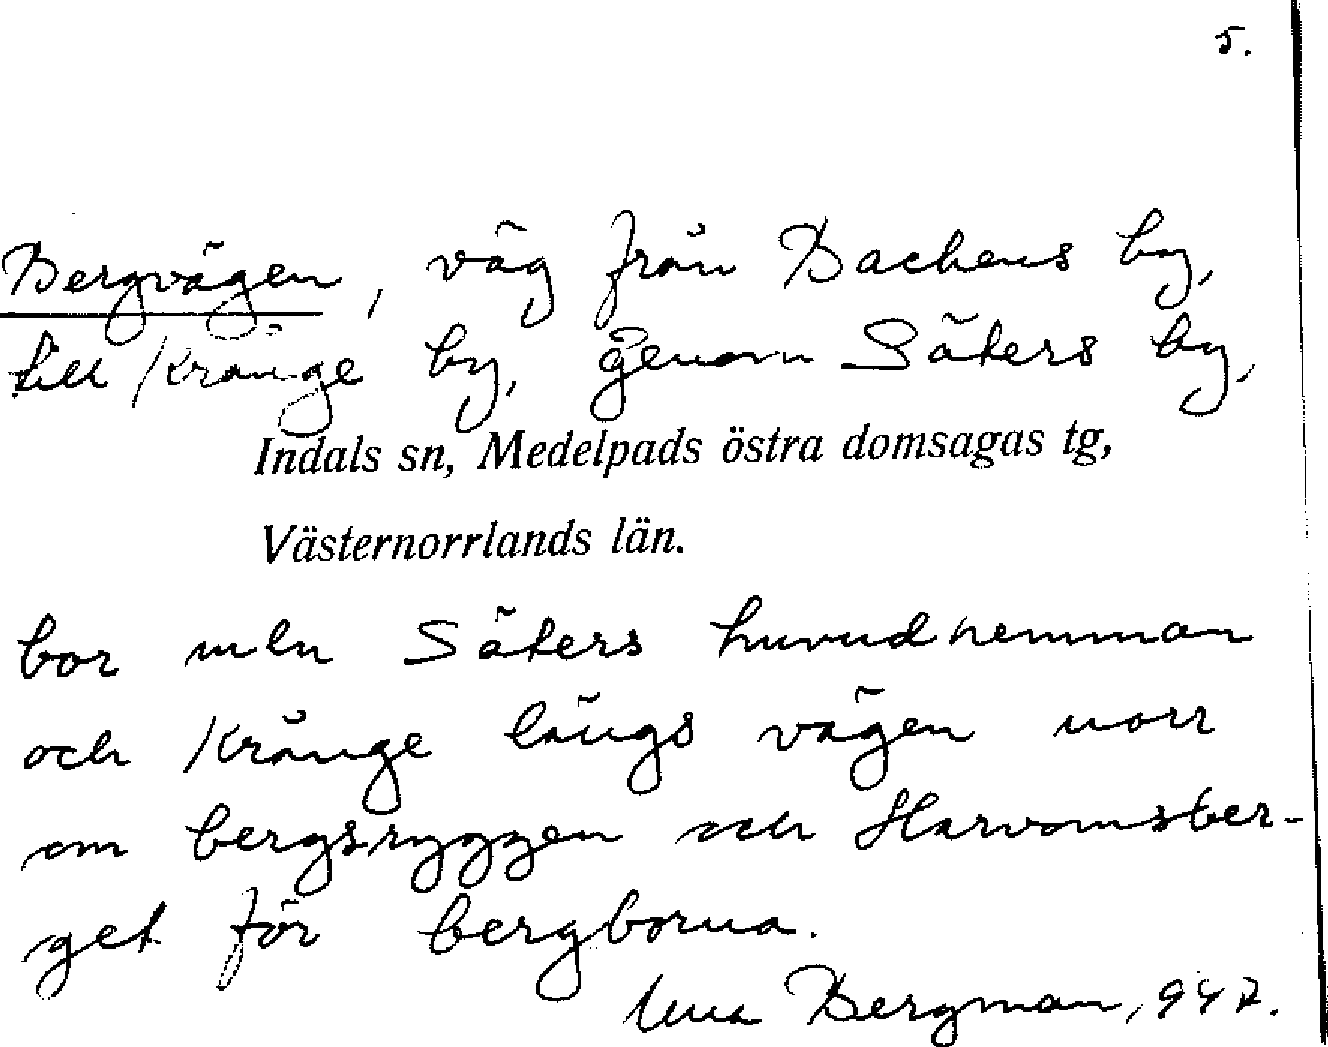 5.
Bergvägen, väg från Backens by,
till Krånge by, genom Säters by,
Indals sn, Medelpads östra domsagas tg,
Västernorrlands län.
bor mln Säters huvudhemman
och Krånge längs vägen norr
om bergsryggen och Harvomsber-
get för bergborna.
Bergman, 947.